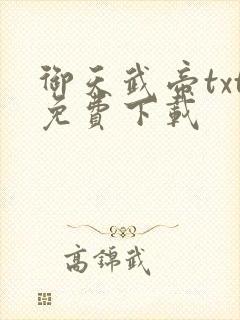 御天武帝txt
免費下載
高錦武